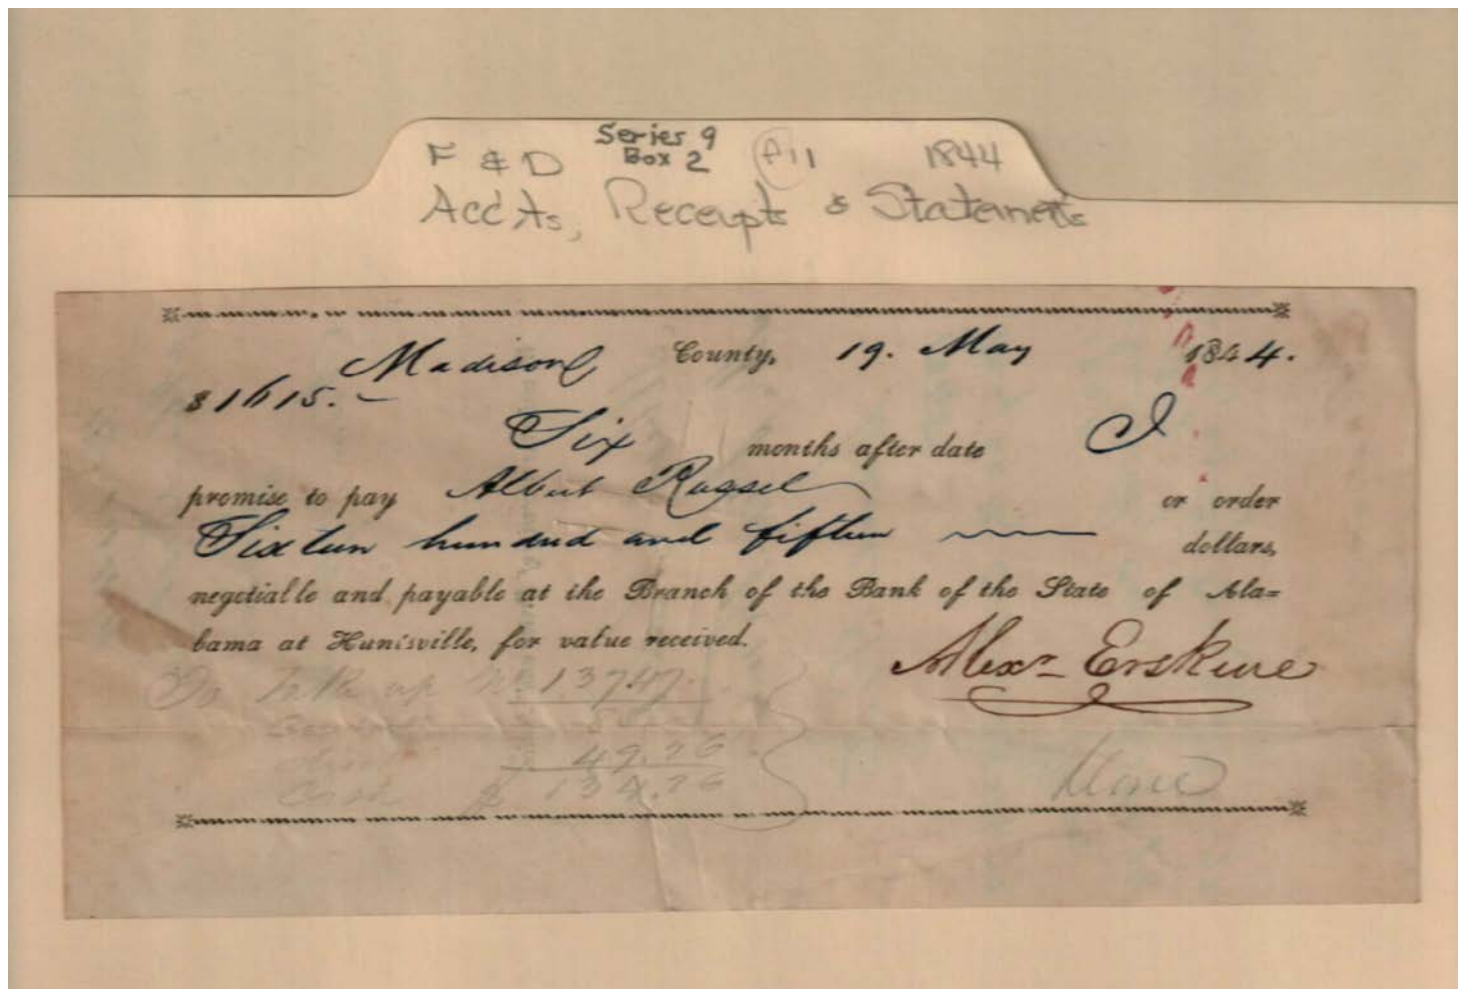 Series 9
F & D Box 2 1844
Accts, Receipts & Statements
Madison County, 19. May 1844.
$1615.—
Six months after date I
promise to pay Albert Russel or order
Sixteen hundred and fifteen dollars,
negotiable and payable at the Branch of the Bank of the State of Ala=
bama at Huntsville, for value received.
Alexr Erskine
To Take up
49.76
Cash $